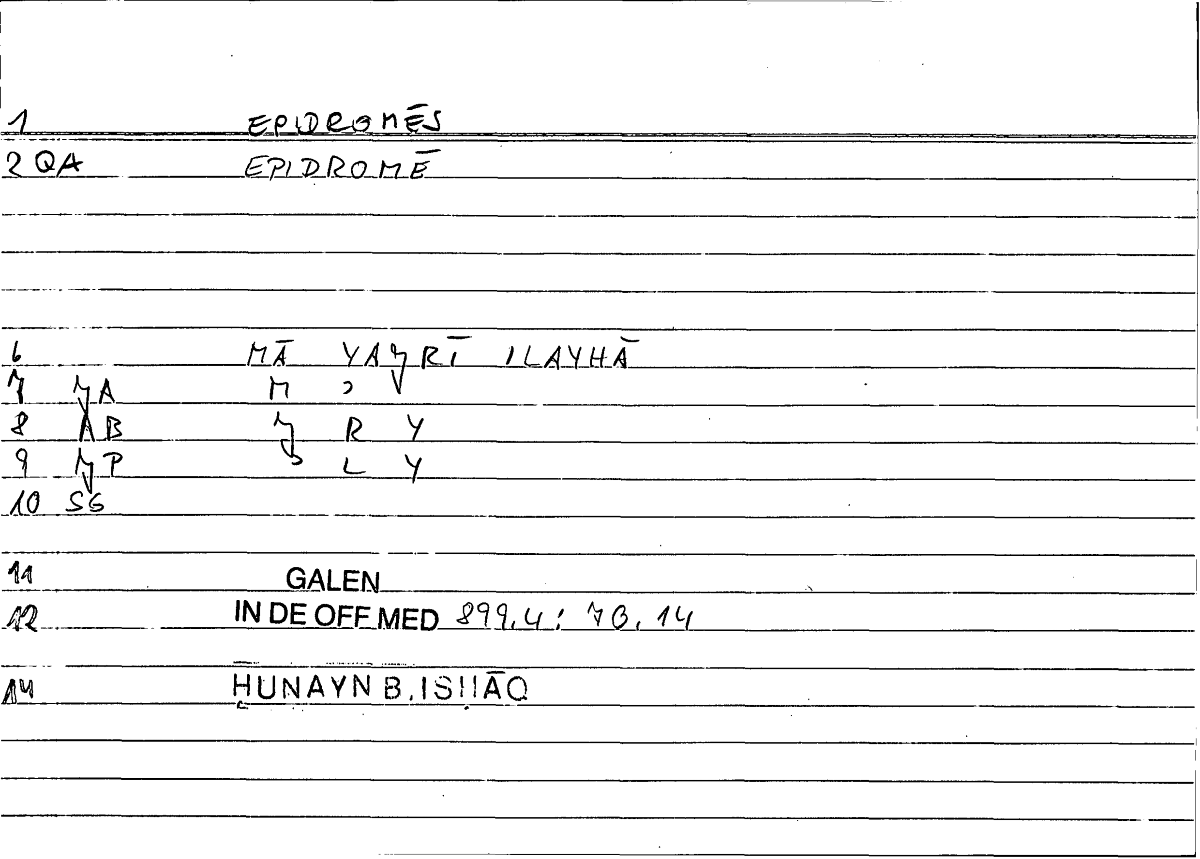 1 EPIDROMĒS
2 QA EPIDROMĒ
6 MĀ YAJRĪ ILAYHĀ
7 JA M ʾ
8 AB J R Y
9 JP ʾ L Y
10 SG
11 GALEN
12 IN DE OFF MED 899,4: 70,14
14 ḤUNAYN B. ISḤĀQ